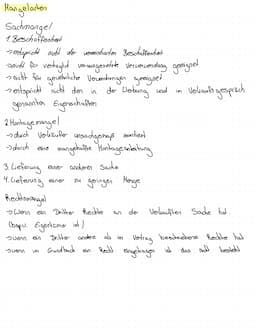 Mangelarten
Sachmangel
1. Beschaffenheit
→ entspricht nicht der vereinbarten Beschaffenheit
→ nicht für vertraglich vorausgesetzte Verwendung geeignet
→ nicht für gewöhnliche Verwendungen geeignet
→ entspricht nicht den in der Werbung und im Verkaufsgespräch
genannten Eigenschaften
2. Montagemangel
→ durch Verkäufer unsachgemäß montiert
→ durch eine mangelhafte Montageanleitung
3. Lieferung einer anderen Sache
4. Lieferung einer zu geringen Menge
Rechtsmangel
→ Wenn ein Dritter Rechte an der verkauften Sache hat
Eigentümer ist)
→ wenn ein Dritter andere als im Vertrag beschriebene Rechte hat
→ wenn im Grundbuch ein Recht eingetragen ist das nicht besteht